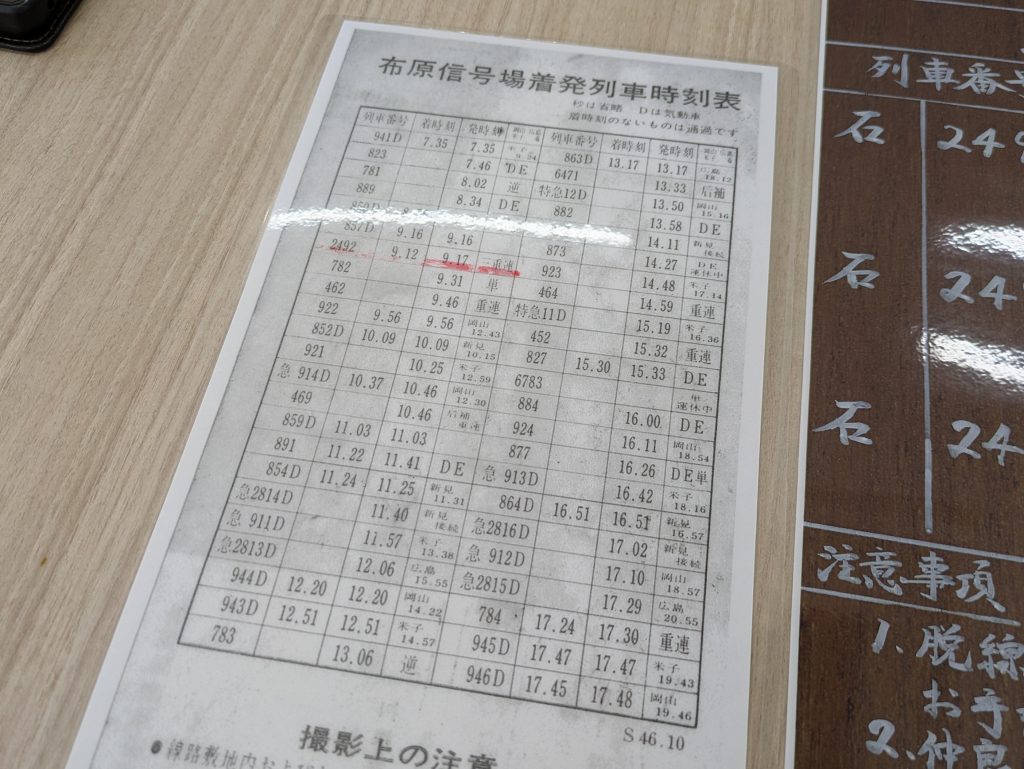 布原信号場着発列車時刻表
秒は省略 Dは気動車
着時刻のないものは通過です
列車番号 着時刻 発時刻 列車番号 着時刻 発時刻
941D 7.35 7.35 米子 9.54 863D 13.17 13.17 広島 18.12
823 7.46 DE 6471 13.33 后補
781 8.02 逆 特急12D 13.50 岡山 15.16
889 8.34 DE 882 13.58 DE
14.11 新見 接続
857D 9.16 9.16 873 14.27 DE 運休中
2492 9.12 9.17 重連 923 14.48 米子 17.14
782 9.31 単 464 14.59 重連
462 9.46 重連 特急11D 15.19 米子 16.36
922 9.56 9.56 岡山 12.43 452 15.32 重連
852D 10.09 10.09 新見 10.15 827 15.30 15.33 DE
921 10.25 米子 12.59 6783 単 運休中
急914D 10.37 10.46 岡山 12.30 884 16.00 DE
469 10.46 后補 重連 924 16.11 岡山 18.54
859D 11.03 11.03 877 16.26 DE単
891 11.22 11.41 DE 急913D 16.42 米子 18.16
854D 11.24 11.25 新見 11.31 864D 16.51 16.51 新見 16.57
急2814D 11.40 新見 接続 急2816D 17.02 新見 接続
急911D 11.57 米子 13.38 急912D 17.10 岡山 18.57
急2813D 12.06 広島 15.55 急2815D 17.29 広島 20.55
944D 12.20 12.20 岡山 14.22 784 17.24 17.30 重連
943D 12.51 12.51 米子 14.57 945D 17.47 17.47 米子 19.43
783 13.06 逆 946D 17.45 17.48 岡山 19.46
S46.10
撮影上の注意
●線路敷地内および
列車番号
石 249
石 24
石 24
注意事項
1.脱線
お手
2.仲良